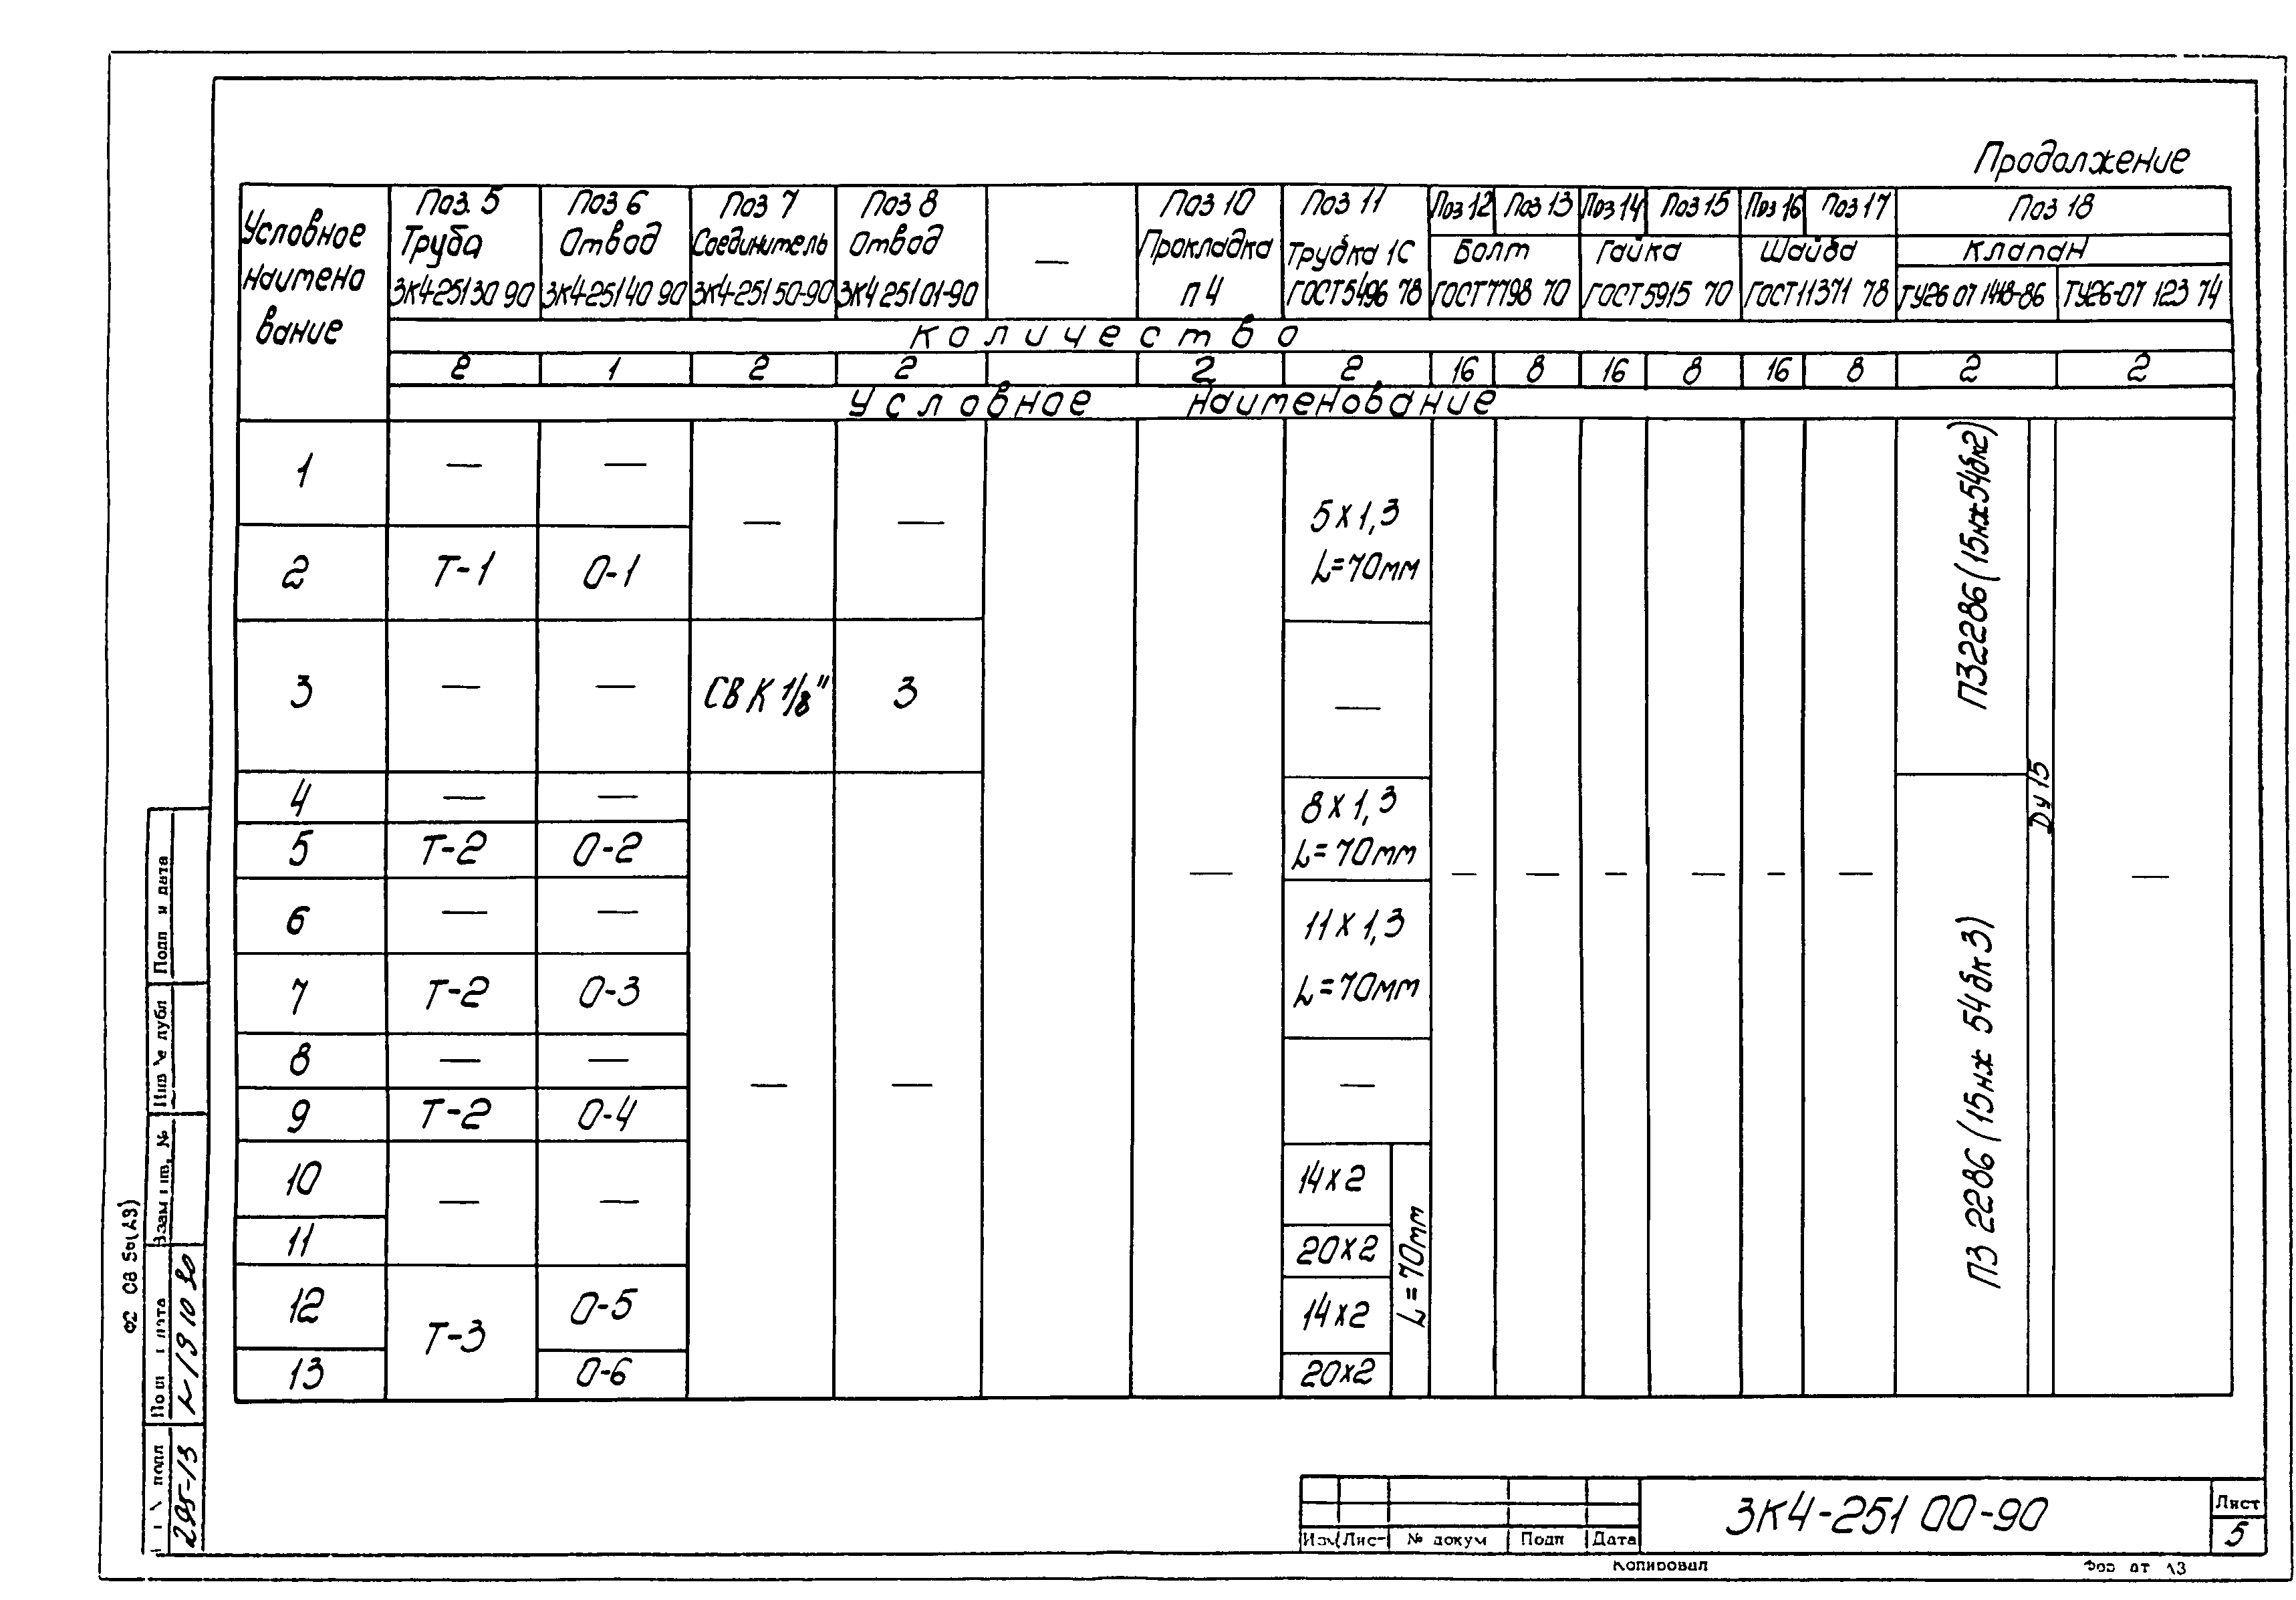 Продолжение
Условное наименование
Поз. 5 Труба ЗК4-251 30 90
Поз 6 Отвод ЗК4-251 40 90
Поз 7 Соединитель ЗК4-251 50-90
Поз 8 Отвод ЗК4 251 01-90
—
Поз 10 Прокладка П 4
Поз 11 Трубка 1С ГОСТ 5496 78
Поз 12 Поз 13 Болт ГОСТ 7798 70
Поз 14 Поз 15 Гайка ГОСТ 5915 70
Поз 16 Поз 17 Шайба ГОСТ 11371 78
Поз 18 Клапан
ТУ26 07 1418-86 ТУ26-07 123 74
Количество
2 1 2 2 2 2 16 8 16 8 16 8 2 2
Условное наименование
1 — —
— — 5х1,3
2 Т-1 О-1 L=70мм
3 — — СВ К 1/8" 3 —
П32286 (15нж54бк2)
4 — — 8х1,3
5 Т-2 О-2 L=70мм
Dy 15
— — — — — — — —
6 — — 11х1,3
7 Т-2 О-3 L=70мм
8 — —
— — —
9 Т-2 О-4
10 — — 14х2
11 20х2
12 Т-3 О-5 14х2
13 О-6 20х2
L=70мм
П3 2286 (15нж 54бк3)
Подп и дата
Взам инв. №
295-13
ЗК4-251 00-90
Лист
5
№ докум Подп Дата
Копировал